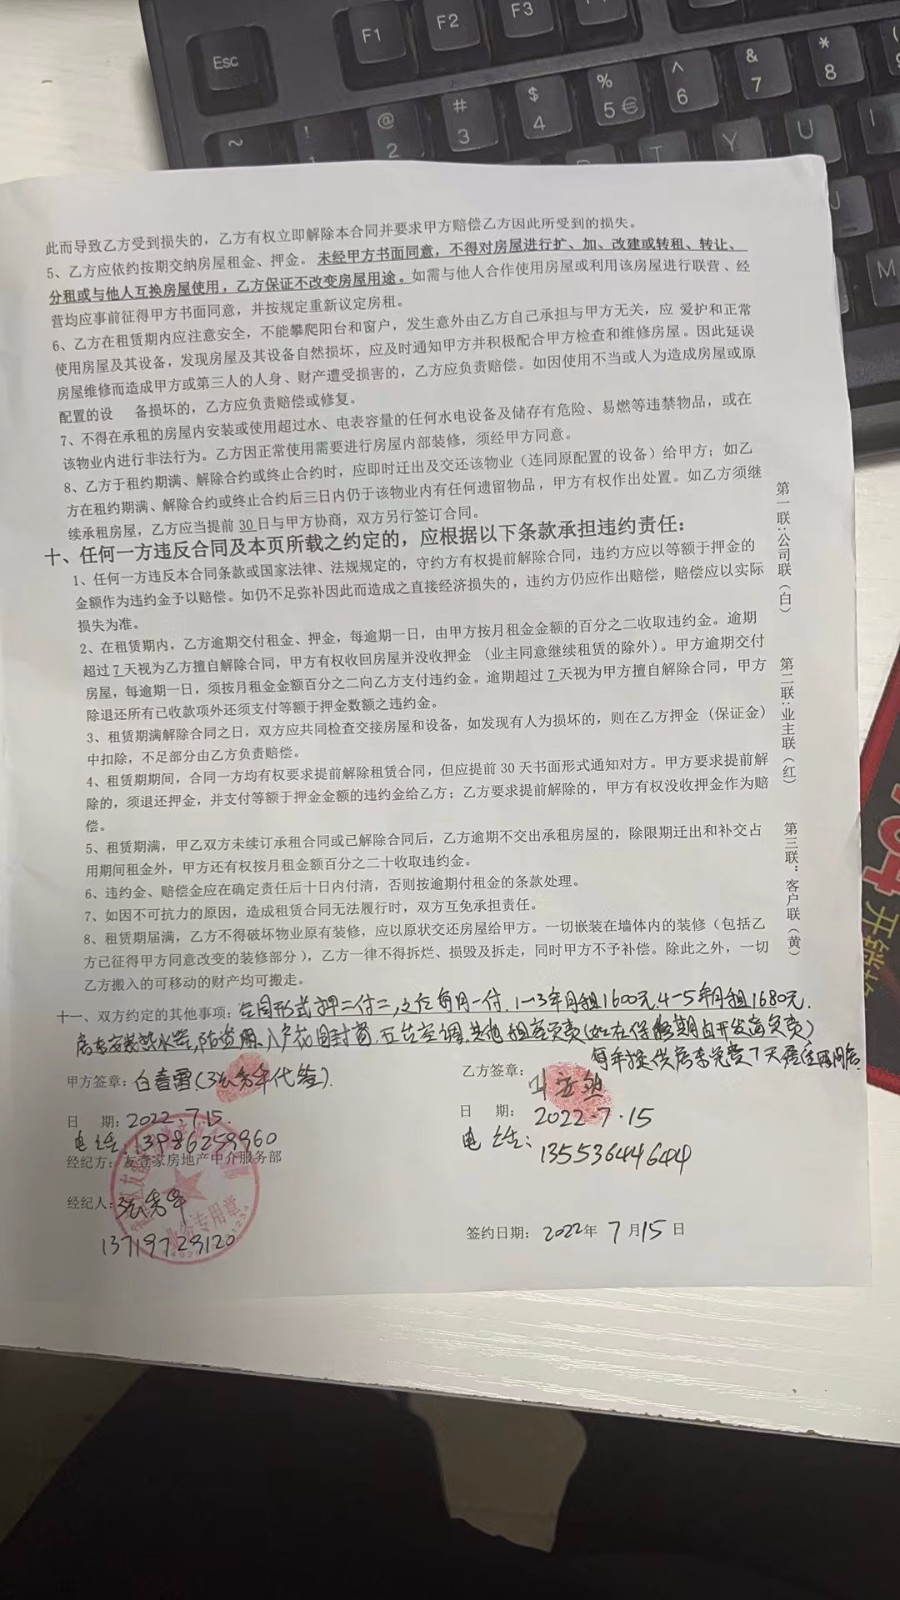 Esc
F1
F2
F3
~
!
@
2
#
3
$
4
%
5 €
^
6
&
7
*
8
T
Y
U
I
J
M
此而导致乙方受到损失的，乙方有权立即解除本合同并要求甲方赔偿乙方因此所受到的损失。
5、乙方应依约按期交纳房屋租金、押金。未经甲方书面同意，不得对房屋进行扩、加、改建或转租、转让、
分租或与他人互换房屋使用，乙方保证不改变房屋用途。如需与他人合作使用房屋或利用该房屋进行联营、经
营均应事前征得甲方书面同意，并按规定重新议定房租。
6、乙方在租赁期内应注意安全，不能攀爬阳台和窗户，发生意外由乙方自己承担与甲方无关，应 爱护和正常
使用房屋及其设备，发现房屋及其设备自然损坏，应及时通知甲方并积极配合甲方检查和维修房屋。因此延误
房屋维修而造成甲方或第三人的人身、财产遭受损害的，乙方应负责赔偿。如因使用不当或人为造成房屋或原
配置的设 备损坏的，乙方应负责赔偿或修复。
7、不得在承租的房屋内安装或使用超过水、电表容量的任何水电设备及储存有危险、易燃等违禁物品，或在
该物业内进行非法行为。乙方因正常使用需要进行房屋内部装修，须经甲方同意。
8、乙方于租约期满、解除合约或终止合约时，应即时迁出及交还该物业（连同原配置的设备）给甲方；如乙
方在租约期满、解除合约或终止合约后三日内仍于该物业内有任何遗留物品，甲方有权作出处置。如乙方须继
续承租房屋，乙方应当提前 30 日与甲方协商，双方另行签订合同。
十、任何一方违反合同及本页所载之约定的，应根据以下条款承担违约责任：
1、任何一方违反本合同条款或国家法律、法规规定的，守约方有权提前解除合同，违约方应以等额于押金的
金额作为违约金予以赔偿。如仍不足弥补因此而造成之直接经济损失的，违约方仍应作出赔偿，赔偿应以实际
损失为准。
2、在租赁期内，乙方逾期交付租金、押金，每逾期一日，由甲方按月租金金额的百分之二收取违约金。逾期
超过 7 天视为乙方擅自解除合同，甲方有权收回房屋并没收押金 （业主同意继续租赁的除外）。甲方逾期交付
房屋，每逾期一日，须按月租金金额百分之二向乙方支付违约金。逾期超过 7 天视为甲方擅自解除合同，甲方
除退还所有已收款项外还须支付等额于押金数额之违约金。
3、租赁期满解除合同之日，双方应共同检查交接房屋和设备，如发现有人为损坏的，则在乙方押金（保证金）
中扣除，不足部分由乙方负责赔偿。
4、租赁期期间，合同一方均有权要求提前解除租赁合同，但应提前 30 天书面形式通知对方。甲方要求提前解
除的，须退还押金，并支付等额于押金金额的违约金给乙方；乙方要求提前解除的，甲方有权没收押金作为赔
偿。
5、租赁期满，甲乙双方未续订承租合同或已解除合同后，乙方逾期不交出承租房屋的，除限期迁出和补交占
用期间租金外，甲方还有权按月租金额百分之二十收取违约金。
6、违约金、赔偿金应在确定责任后十日内付清，否则按逾期付租金的条款处理。
7、如因不可抗力的原因，造成租赁合同无法履行时，双方互免承担责任。
8、租赁期届满，乙方不得破坏物业原有装修，应以原状交还房屋给甲方。一切嵌装在墙体内的装修（包括乙
方已征得甲方同意改变的装修部分），乙方一律不得拆烂、损毁及拆走，同时甲方不予补偿。除此之外，一切
乙方搬入的可移动的财产均可搬走。
第一联：公司联（白）
第二联：业主联（红）
第三联：客户联（黄）
十一、双方约定的其他事项：合同形式押二付二，之后每月一付，1-3年月租1600元，4-5年月租1680元.
房东安装热水器，防盗网，入户花园封窗，五台空调，其他租客负责（如在保修期由开发商负责）
每年提供房东免费7天居住两间房.
甲方签章：白春雷（张秀华代签）.
日 期：2022.7.15
电话：13986259960
经纪方：友壹家房地产中介服务部
业务专用章
经纪人：张秀华
13719729120
乙方签章：
日 期：2022.7.15
电话：
13553644644
签约日期：2022年 7月15日
开锁